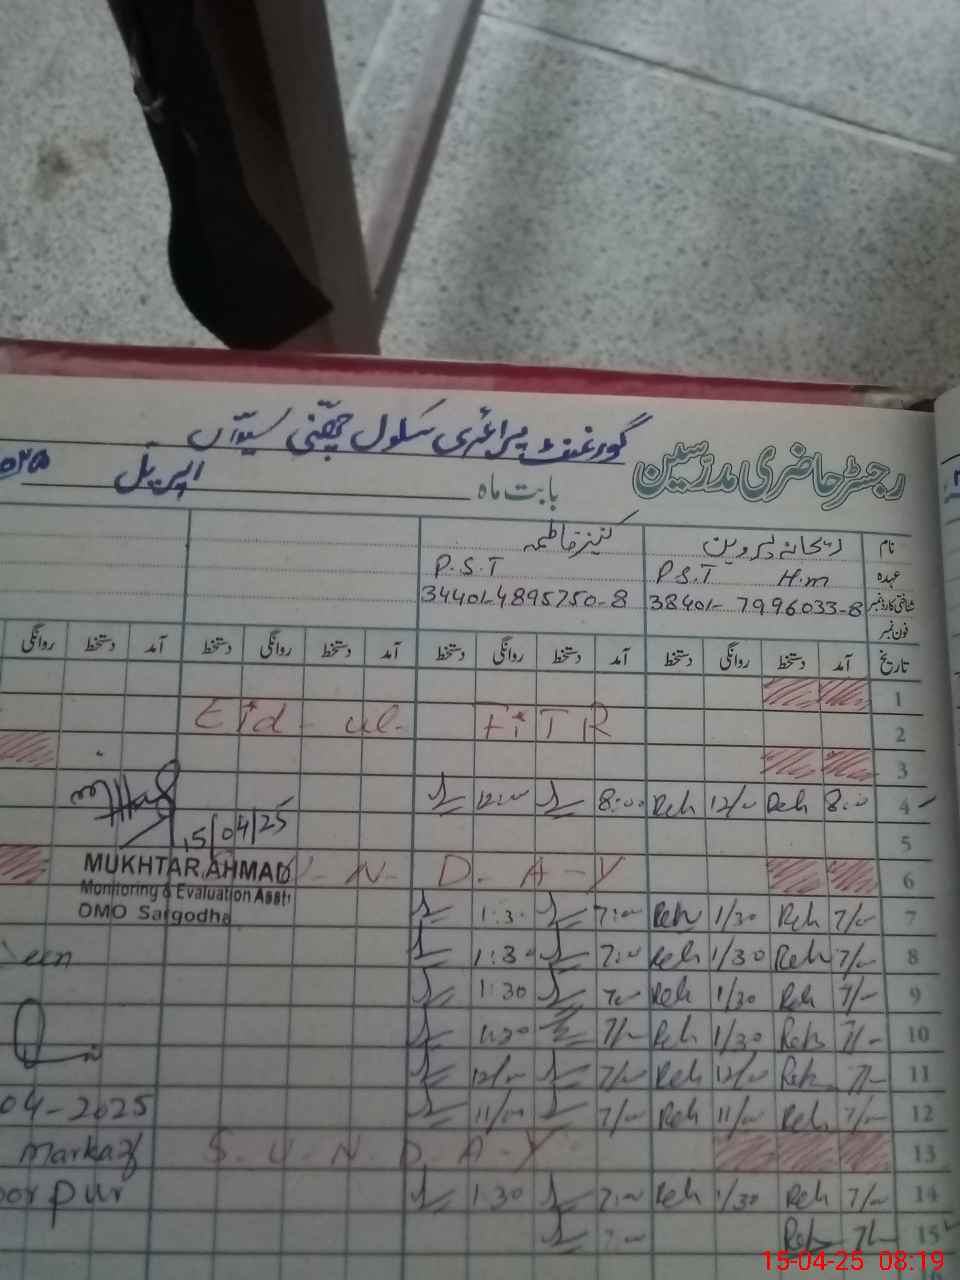 گورنمنٹ پرائمری سکول چھنی سیداں
رجسٹر حاضری مدرسین
بابت ماہ اپریل
نام ریحانہ پروین کنیز فاطمہ
عہدہ P.S.T H.m P.S.T
شناختی کارڈ نمبر 38401-7996033-8 34401-4895750-8
فون نمبر
تاریخ آمد دستخط روانگی دستخط آمد دستخط روانگی دستخط آمد دستخط روانگی دستخط آمد دستخط روانگی
1
2 Eid-ul-FiTR
3
4 8:00 Reh 12/00 Reh 8:00 12:00
5
6 S-U-N-D-A-Y
7 7/00 Reh 1/30 Reh 7:00 1:30
8 7/00 Reh 1/30 Reh 7:00 1:30
9 7/- Reh 1/30 Reh 7:00 1:30
10 7/- Reh 1/30 Reh 7/00 1:30
11 7/- Reh 12/00 Reh 7/00 12/00
12 7/00 Reh 11/00 Reh 7/00 11/00
13 S-U-N-D-A-Y
14 7/00 Reh 1/30 Reh 7:00 1:30
15 7/- Reh 7:00
15/04/25
MUKHTAR AHMAD
Monitoring & Evaluation Asstt
DMO Sargodha
04-2025
Markaz
pur
15-04-25 08:19